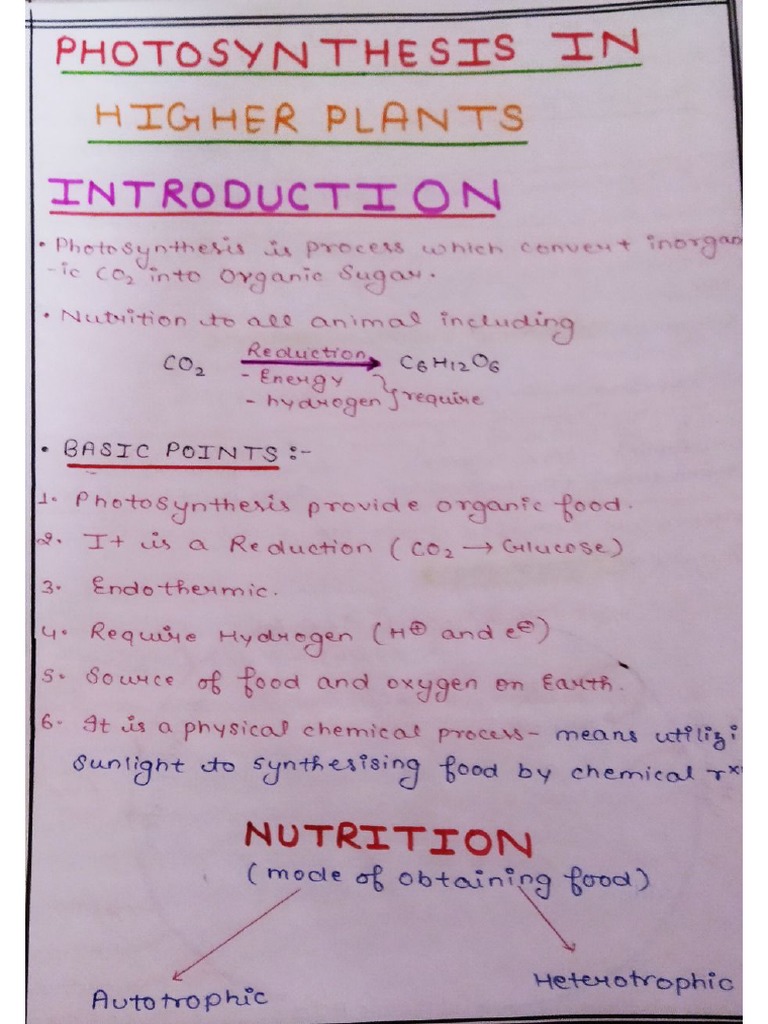 PHOTOSYNTHESIS IN
HIGHER PLANTS
INTRODUCTION
• Photosynthesis is process which convert inorgan
-ic CO₂ into organic Sugar.
• Nutrition to all animal including
CO₂ Reduction → C6H12O6
- Energy
- hydrogen } require
• BASIC POINTS :-
1. Photosynthesis provide organic food.
2. It is a Reduction (CO₂ → Glucose)
3. Endothermic.
4. Require Hydrogen (H⊕ and e⊖)
5. Source of food and oxygen on Earth.
6. It is a physical chemical process - means utilizi
sunlight to synthesising food by chemical rxn
NUTRITION
(mode of obtaining food)
Autotrophic
Heterotrophic